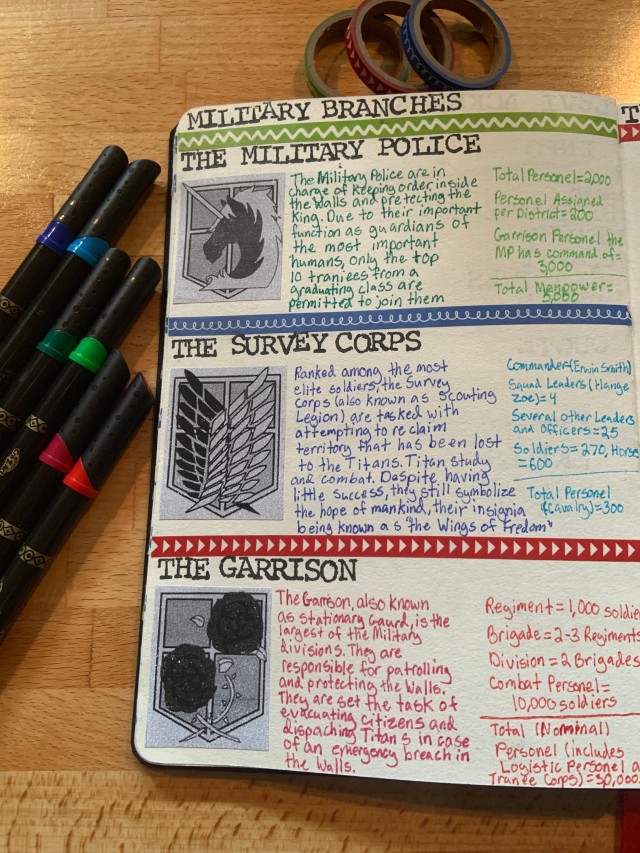 MILITARY BRANCHES
THE MILITARY POLICE
The Military Police are in
charge of keeping order inside
the walls and pretecting the
King. Due to their important
function as guardians of
the most important
humans, only the top
10 traniees from a
graduating class are
permitted to join them
Total Personel=2,000
Personel Assigned
per District=200
Garrison Personel the
MP has command of=
3,000
Total Manpower=
5,000
THE SURVEY CORPS
Ranked among the most
elite soldiers, the Survey
Corps (also known as scouting
Legion) are tasked with
attempting to reclaim
territory that has been lost
to the Titans. Titan study
and combat. Despite having
little success, they still symbolize
the hope of mankind, their insignia
being known as "the Wings of Fredom"
Commander(Erwin Smith)
Squad Leaders (Hange
Zoe)=4
Several other Leaders
and Officers=25
Soldiers=270, Horse
=600
Total Personel
(Cavalry)=300
THE GARRISON
The Garrison, also known
as stationary gaurd, is the
largest of the Military
divisions. They are
responsible for patrolling
and protecting the Walls.
They are set the task of
evacuating citizens and
dispaching Titans in case
of an emergency breach in
the Walls.
Regiment=1,000 soldie
Brigade=2-3 Regiments
Division=2 Brigades
Combat Personel=
10,000 soldiers
Total (Nominal)
Personel (includes
Logistic Personel a
Tranee Corps)=30,000
T